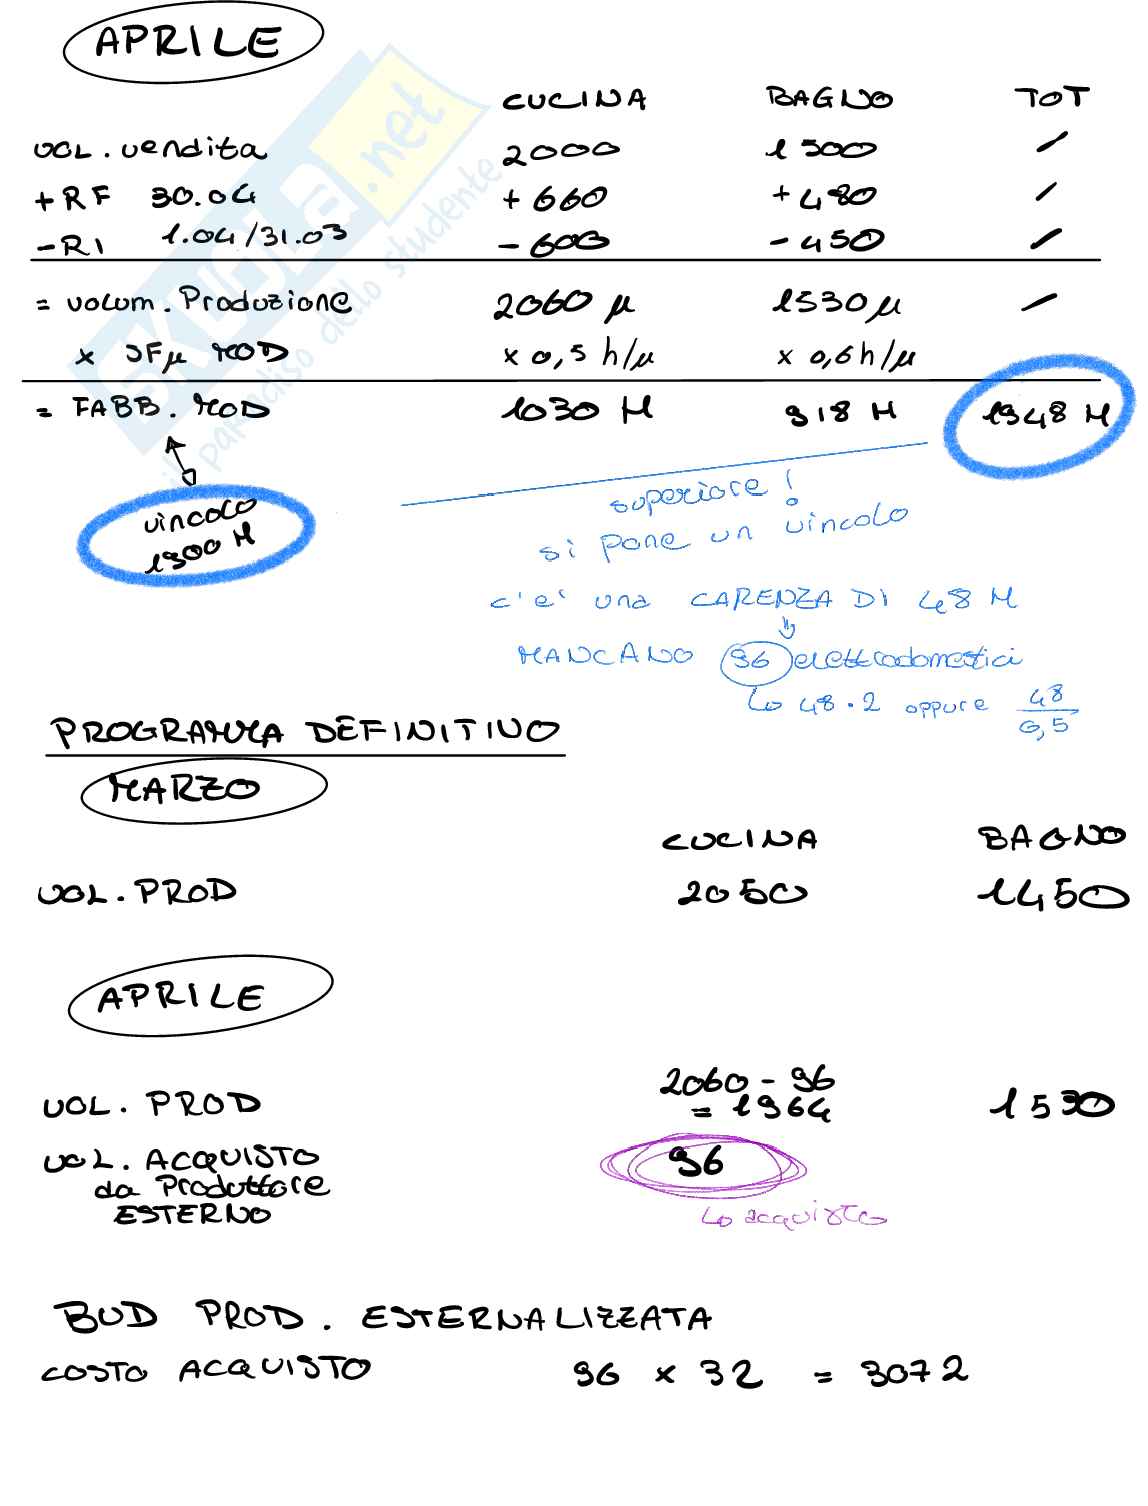 APRILE
CUCINA BAGNO TOT
VOL. vendita 2000 1500 /
+ RF 30.04 + 660 + 480 /
- RI 1.04/31.03 - 600 - 450 /
= volum. Produzione 2060 μ 1530 μ /
x SFμ MOD x 0,5 h/μ x 0,6 h/μ
= FABB. MOD 1030 H 918 H 1948 H
vincolo
1900 H
superiore!
si pone un vincolo
c'e' una CARENZA DI 48 H
MANCANO 96 elettrodomestici
↳ 48 · 2 oppure 48
0,5
PROGRAMMA DEFINITIVO
MARZO
CUCINA BAGNO
VOL. PROD 2050 1450
APRILE
2060 - 96
VOL. PROD = 1964 1530
VOL. ACQUISTO 96
da Produttore
ESTERNO
↳ acquisto
BUD PROD. ESTERNALIZZATA
COSTO ACQUISTO 96 x 32 = 3072
SKUOLA.net
il paradiso dello studente